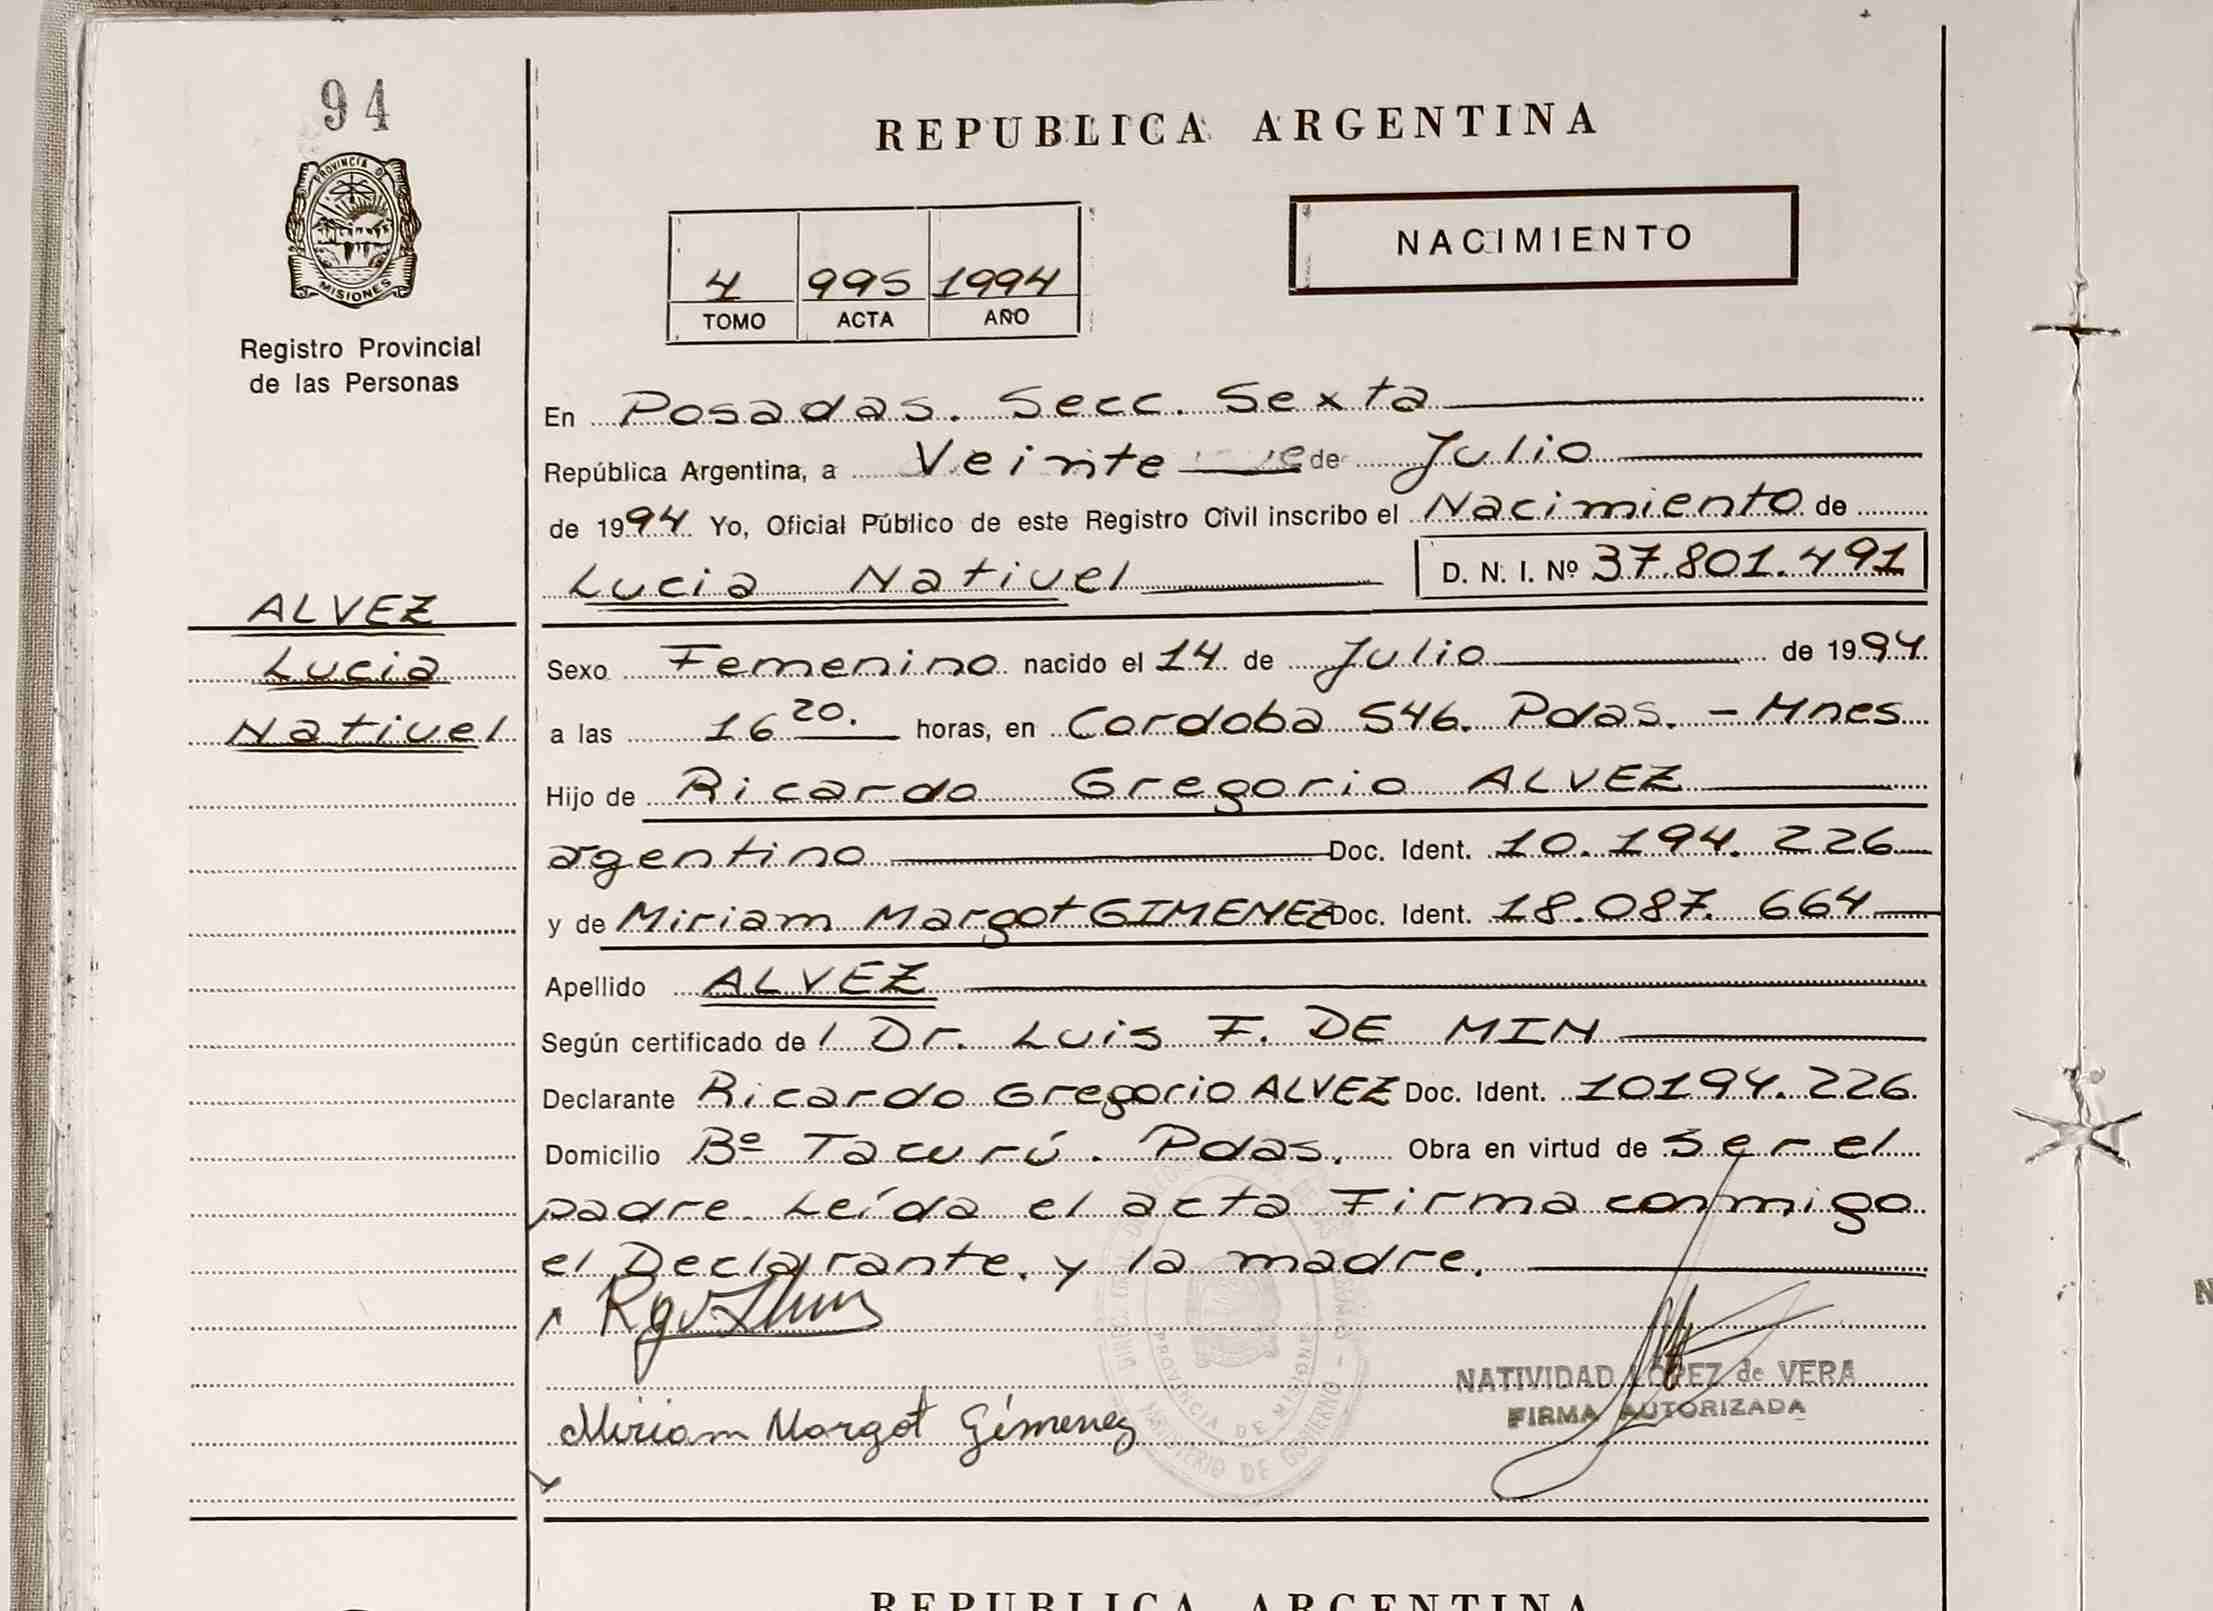 94
PROVINCIA DE
MISIONES
Registro Provincial
de las Personas
ALVEZ
Lucia
Nativel
REPUBLICA ARGENTINA
NACIMIENTO
4 995 1994
TOMO ACTA AÑO
En Posadas. Secc. Sexta
República Argentina, a Veinte de Julio
de 1994 Yo, Oficial Público de este Registro Civil inscribo el Nacimiento de
Lucia Nativel D. N. I. Nº 37.801.491
Sexo Femenino nacido el 14 de Julio de 1994
a las 16 20. horas, en Cordoba 546. Pdas. - Mnes
Hijo de Ricardo Gregorio ALVEZ
argentino Doc. Ident. 10.194.226
y de Miriam Margot GIMENEZ Doc. Ident. 18.087.664
Apellido ALVEZ
Según certificado de l Dr. Luis F. DE MIN
Declarante Ricardo Gregorio ALVEZ Doc. Ident. 10194.226.
Domicilio Bº Tacurú. Pdas. Obra en virtud de ser el
padre. Leída el acta Firma conmigo
el Declarante. y la madre.
NATIVIDAD LOPEZ de VERA
FIRMA AUTORIZADA
Miriam Margot Gimenez
PROVINCIA DE MISIONES
MINISTERIO DE GOBIERNO
REPUBLICA ARGENTINA